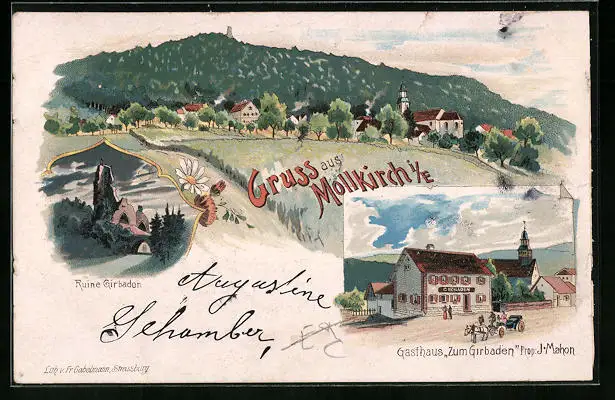 Gruss aus
Mollkirch i/E
Ruine Girbaden
Augustine
Schamber,
Gasthaus „Zum Girbaden" Prop: J. Mahon
Lith. v. Fr. Gabelmann, Strassburg.